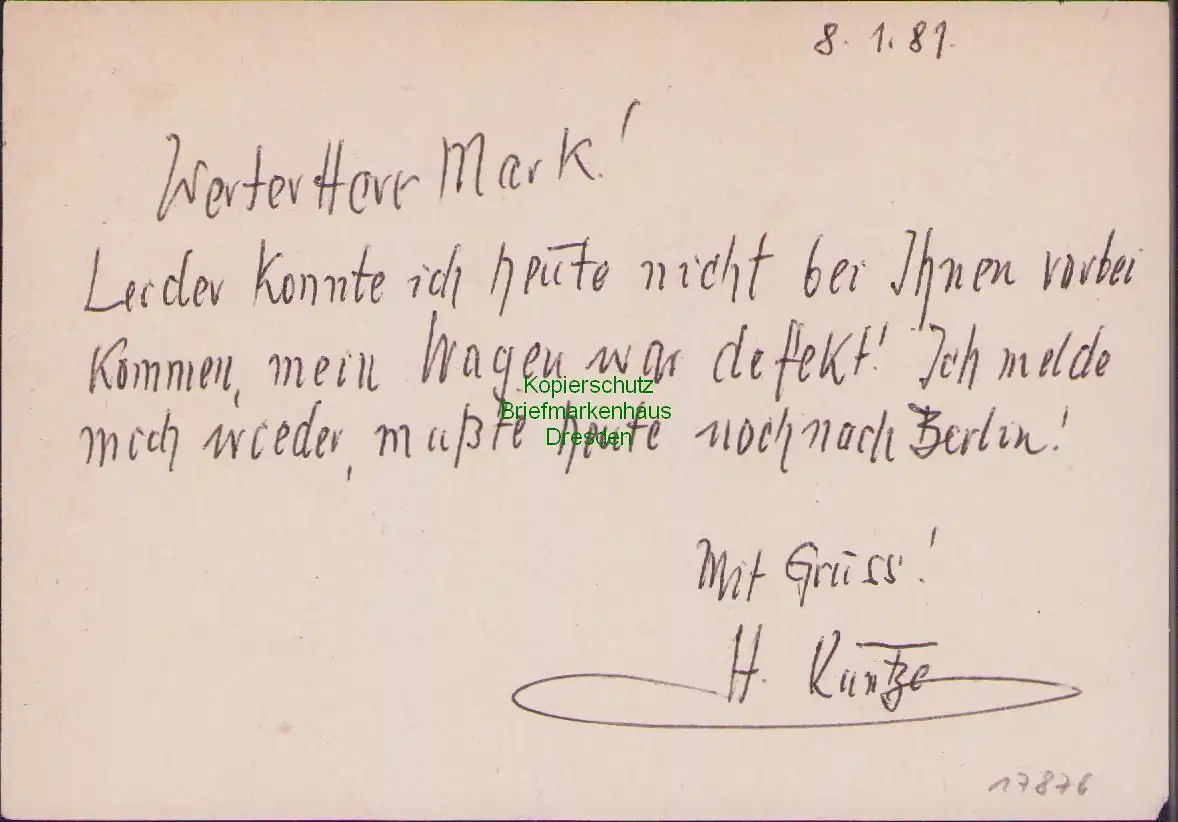 8. 1. 81.
Werter Herr Mark!
Leider konnte ich heute nicht bei Ihnen vorbei
kommen, mein Wagen war defekt! Ich melde
Kopierschutz
Briefmarkenhaus
Dresden
mich wieder, mußte heute noch nach Berlin!
Mit Grüss!
H. Kuntze
17876